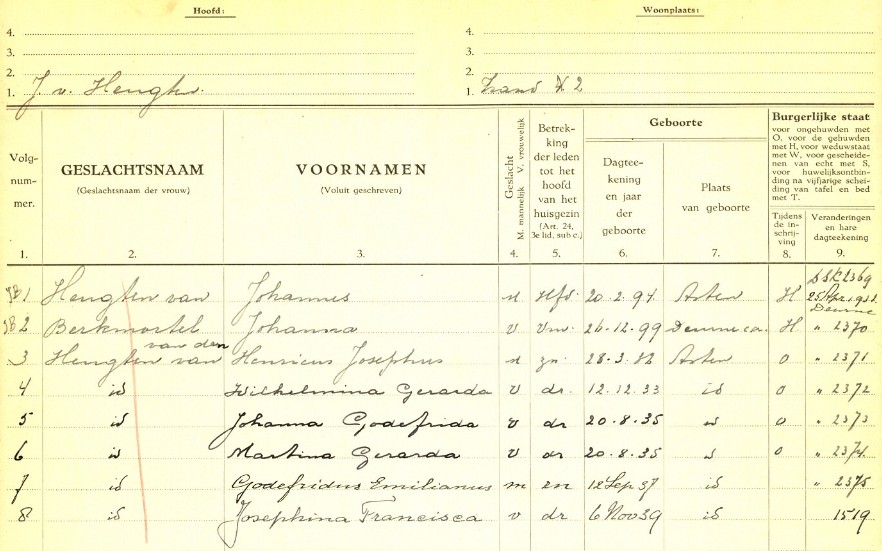 Hoofd: Woonplaats:
4. 4.
3. 3.
2. 2.
1. J. v. Hengten. 1. Zand X 2
Volg-
num-
mer.
1.
GESLACHTSNAAM
(Geslachtsnaam der vrouw)
2.
VOORNAMEN
(Voluit geschreven)
3.
Geslacht
M. mannelijk V. vrouwelijk
4.
Betrek-
king
der leden
tot het
hoofd
van het
huisgezin
(Art. 24,
3e lid, sub c.)
5.
Geboorte
Dagtee-
kening
en jaar
der
geboorte
6.
Plaats
van geboorte
7.
Burgerlijke staat
voor ongehuwden met
O. voor de gehuwden
met H, voor weduwstaat
met W, voor gescheide-
nen van echt met S,
voor huwelijksontbin-
ding na vijfjarige schei-
ding van tafel en bed
met T.
Tijdens
de in-
schrij-
ving
8.
Veranderingen
en hare
dagteekening
9.
1 Hengten van Johannes Hfd. 20.2.94 Asten H 2369
25 Apr. Deurne
2 Berkmortel van den Johanna v Vrw. 26.12.99 Deurne H " 2370
3 Hengten van Henricus Josephus zn. 28.3. Asten o " 2371
4 id Wilhelmina Gerarda v dr. 12.12.33 id o " 2372
5 id Johanna Godefrida v dr 20.8.35 id o " 2373
6 id Martina Gerarda v dr 20.8.35 id o " 2374
7 id Godefridus Emilianus m zn 12 Sep 37 id " 2375
8 id Josephina Francisca v dr 6 Nov 39 id 1519